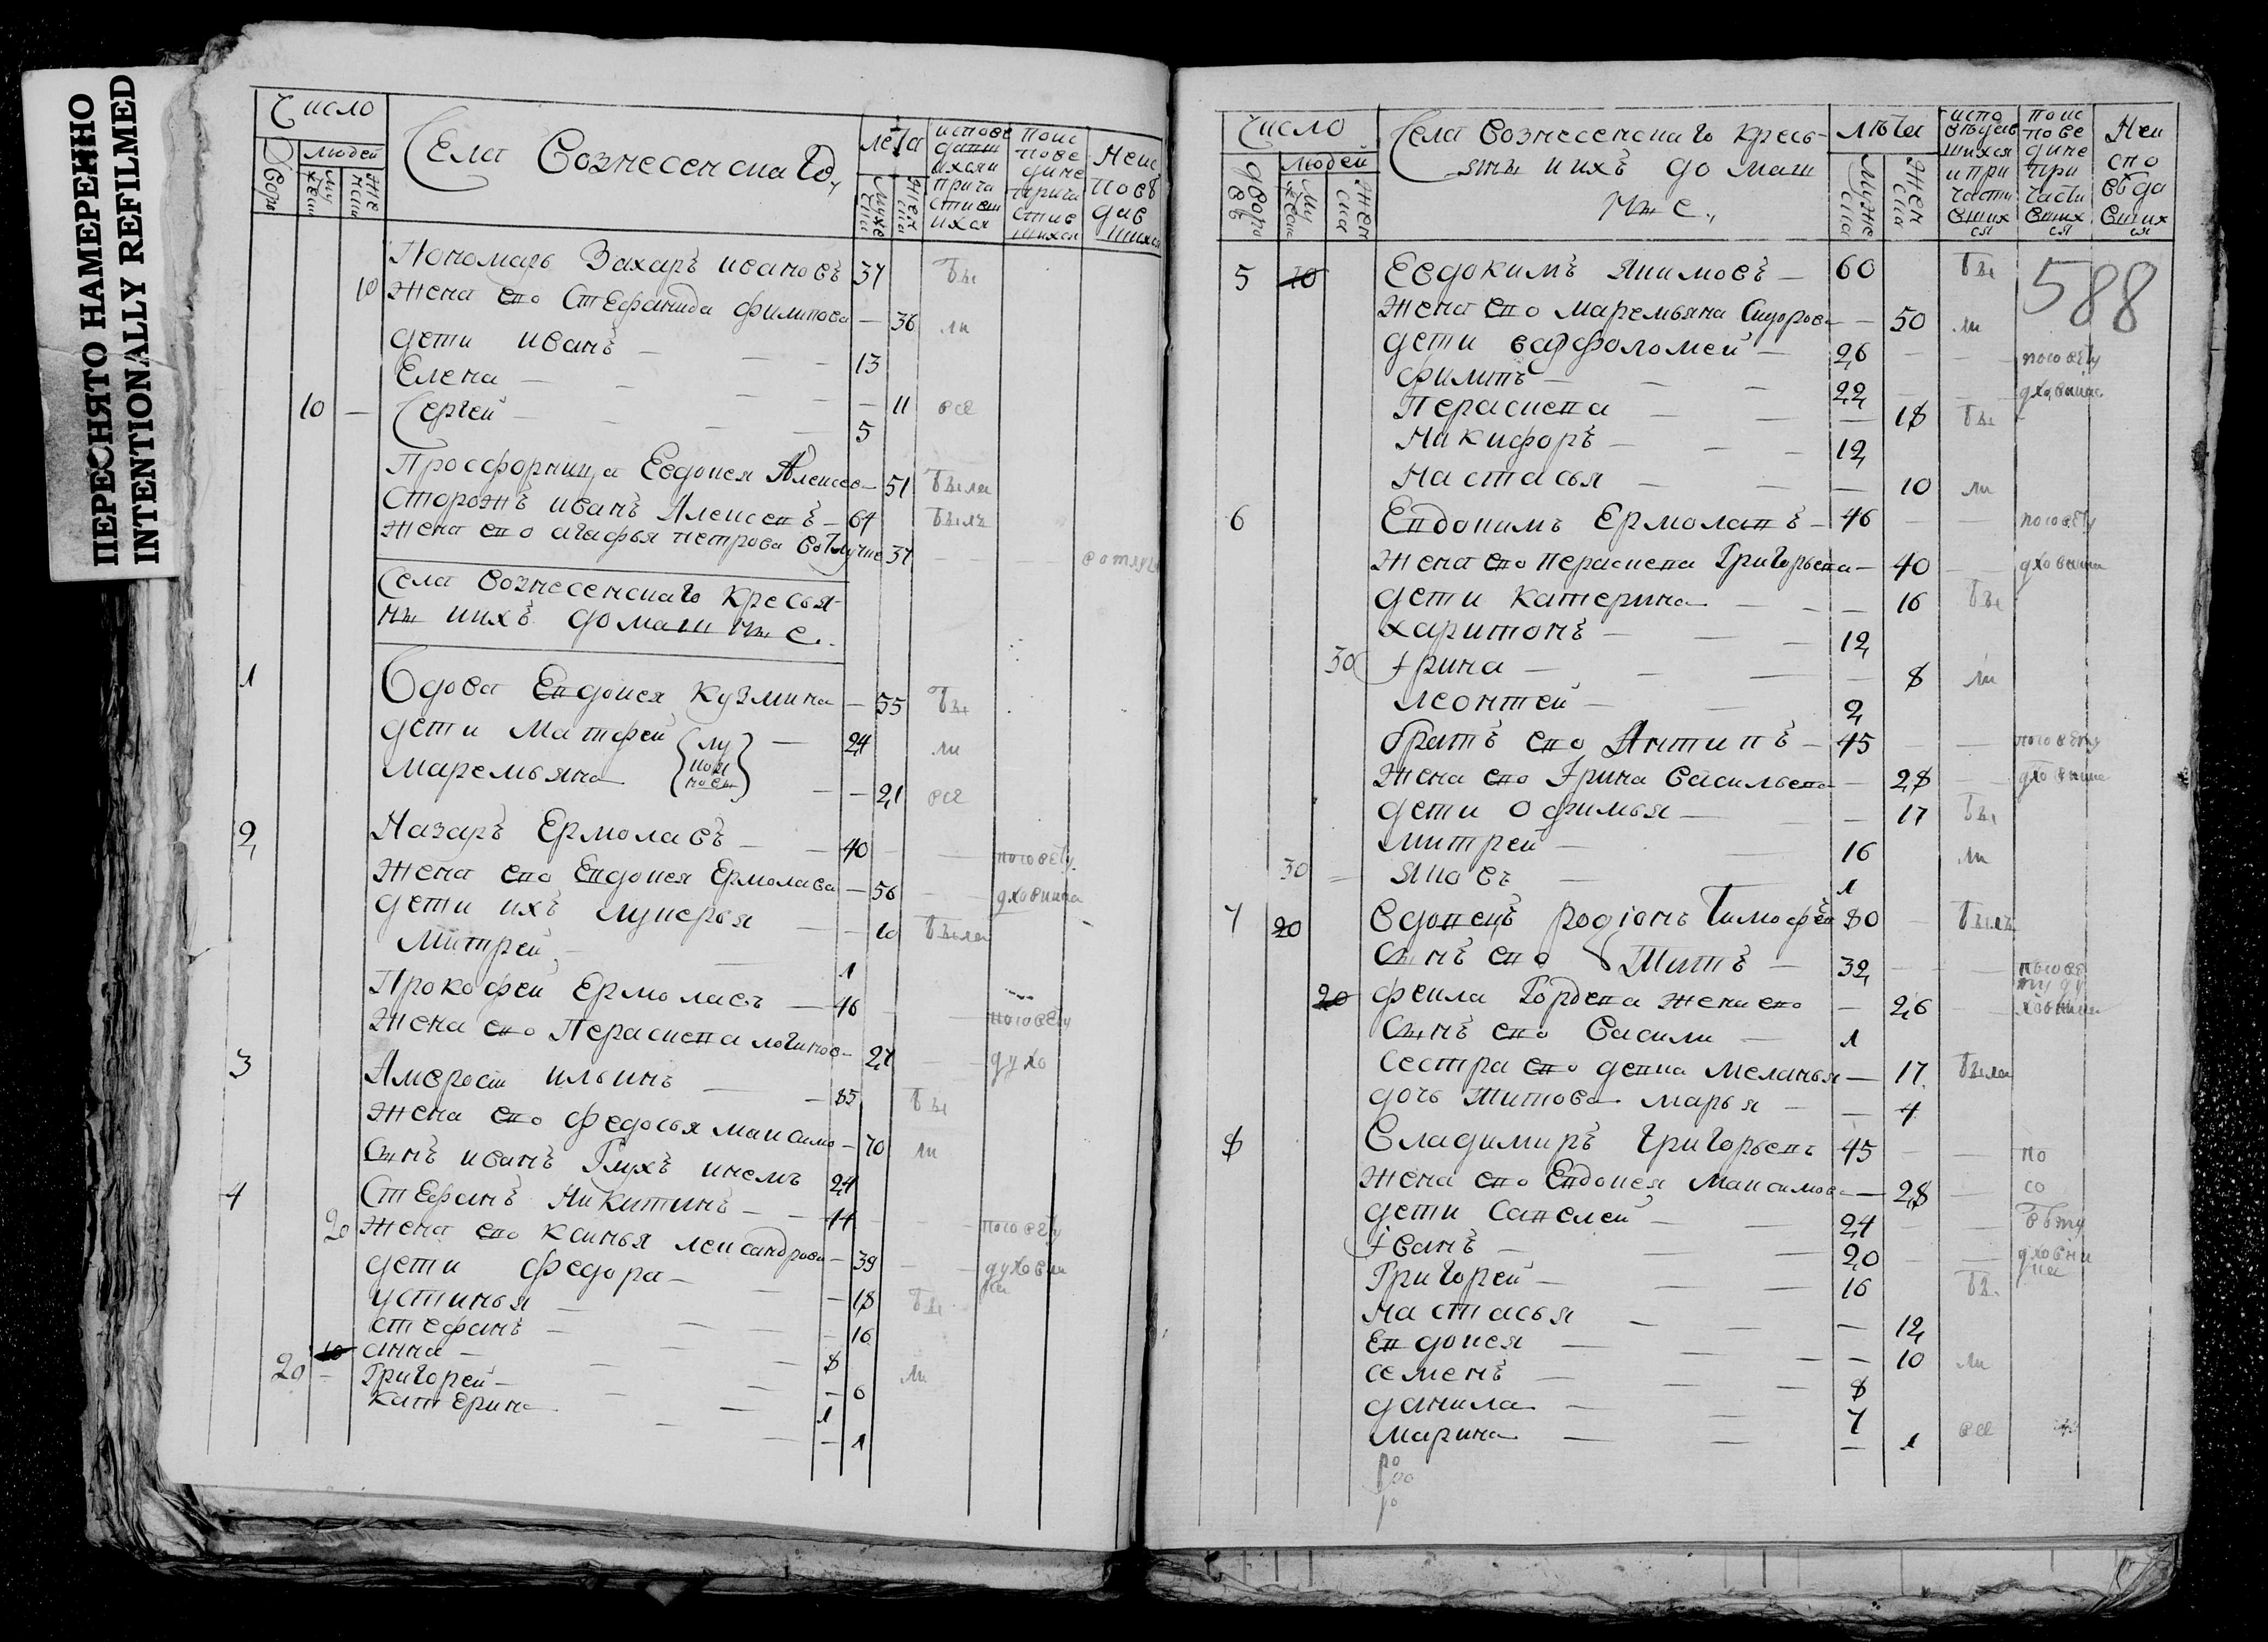 ПЕРЕСНЯТО НАМЕРЕННО
INTENTIONALLY REFILMED
Число
Дворо
людей
Муже
Жен
Села Вознесенскаго,
лета
Муже ска
Жен ска
испове дати ихся и прича стивш ихся
поис пове дине прича стив шихся
Неис повѣ дав шихся
Пономарь Захаръ ивановъ 37 бы
10 Жена ево Стефанида филипова — 36 ли
дети иванъ — 13
Елена — 11 все
10 — Сергей — 5
Просфорница Евдокея Алексее — 51 была
Сторожъ иванъ Алексеевъ — 64 былъ
Жена ево агафья петрова 37
Села вознесенскаго кресья-
ны ихъ домашные.
1 Вдова Евдокея Кузмина — 55 бы
дети Матфей 24 ли
Маремьяна — 21 все
2 Назаръ Ермолаевъ — 40 посовету
Жена ево Евдокея Ермолаева — 56 дховника
дети ихъ лукерья — 10 была
Митрей — 1
Прокофей Ермолаевъ — 46 посовету
Жена ево Пераскева логинов — 27 духо
3 Амвросий ильинъ — 85 бы
Жена ево федосья максимо — 70 ли
Сынъ иванъ Глухъ инемъ 24
4 Стефанъ Никитинъ — 44 посовету
20 Жена ево ксинья лександрова — 39 духовни ка
дети федора — 18 бы
устинья — 16
стефанъ — 8
10 анна — 6 ли
20 — Григорей — 1
Катерина — 1
Число
дворо въ
людей
Му жеска
Жен ска
Села Вознесенскаго кресь-
яны ихъ домаш
ные.,
лѣта
Муже ска
Жен ска
испо вѣдав шихся и при части вших ся
поис пове дине при части вших ся
Неи спо вѣда вших ся
588
5 10 Евдокимъ Якимовъ — 60 бы
Жена ево маремьяна Сидорова — 50 ли
дети варфоломей — 26 посовету
филипъ — 22 дховника
Пераскева — 18 бы
Никифоръ — 12
Настасья — 10 ли
6 Евдокимъ Ермолаевъ — 46 посовету
Жена ево пераскева Григорьева — 40 дховника
дети катерина — 16 бы
харитонъ — 12
30 Ирина — 8 ли
леонтей — 2
братъ ево Антипъ — 45 посовету
Жена ево Ирина Васильева — 28 дховника
дети Офимья — 17 бы
Митрей — 16 ли
30 Яковъ — 1
7 20 Вдовецъ родіонъ Тимофее 80 былъ
Сынъ ево Титъ — 32 посове ту ду
20 феила Гордева жена ево — 26 ховника
Сынъ ево Васили — 1
сестра ево девка Меланья — 17 была
дочь Титова марья — 4
8 Владимиръ Григорьевъ 45 по
Жена ево Евдокея Максимова — 28 со
дети Савелей — 24 вѣту
Иванъ — 20 дховни ка
Григорей — 16 бы
настасья — 12
Евдокея — 10 ли
семенъ — 8
данила — 7
марина — 1 все
ро